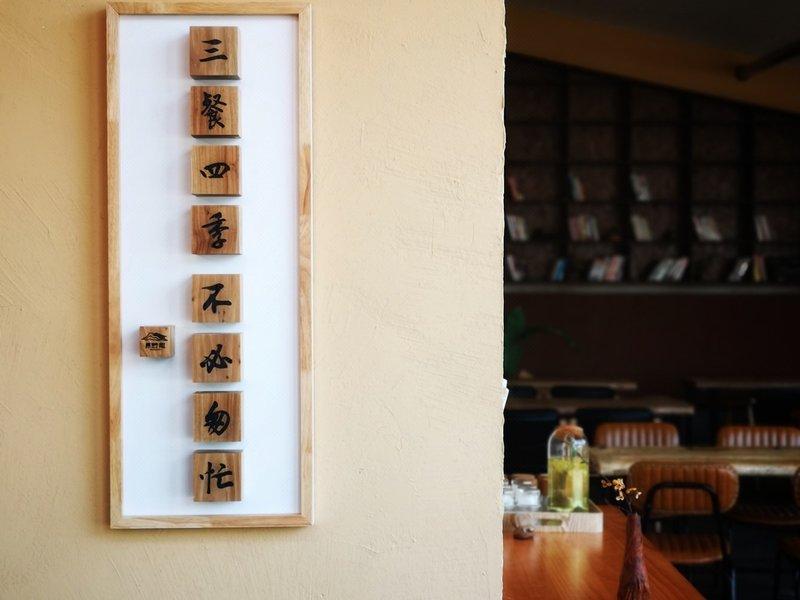 三餐四季不必匆忙